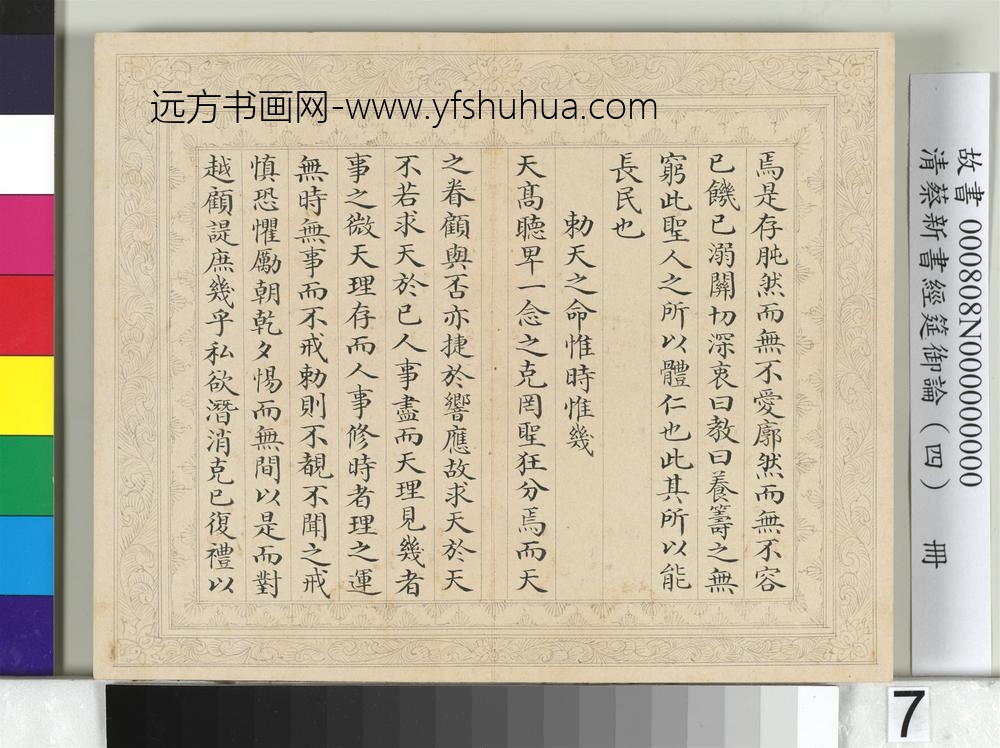 远方书画网-www.yfshuhua.com
焉是存肫然而無不愛廓然而無不容
已饑已溺關切深衷曰教曰養籌之無
窮此聖人之所以體仁也此其所以能
長民也
勅天之命惟時惟幾
天高聽卑一念之克罔聖狂分焉而天
之眷顧與否亦捷於響應故求天於天
不若求天於己人事盡而天理見幾者
事之微天理存而人事修時者理之運
無時無事而不戒勅則不覩不聞之戒
慎恐懼勵朝乾夕惕而無間以是而對
越顧諟庶幾乎私欲潛消克已復禮以
故書 000808N000000000
清蔡新書經筵御論(四) 冊
7